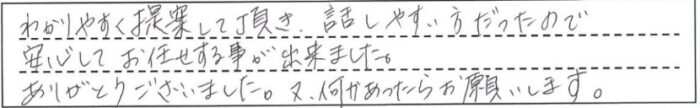 わかりやすく提案して頂き、話しやすい方だったので
安心してお任せする事が出来ました。
ありがとうございました。又、何かあったらお願いします。